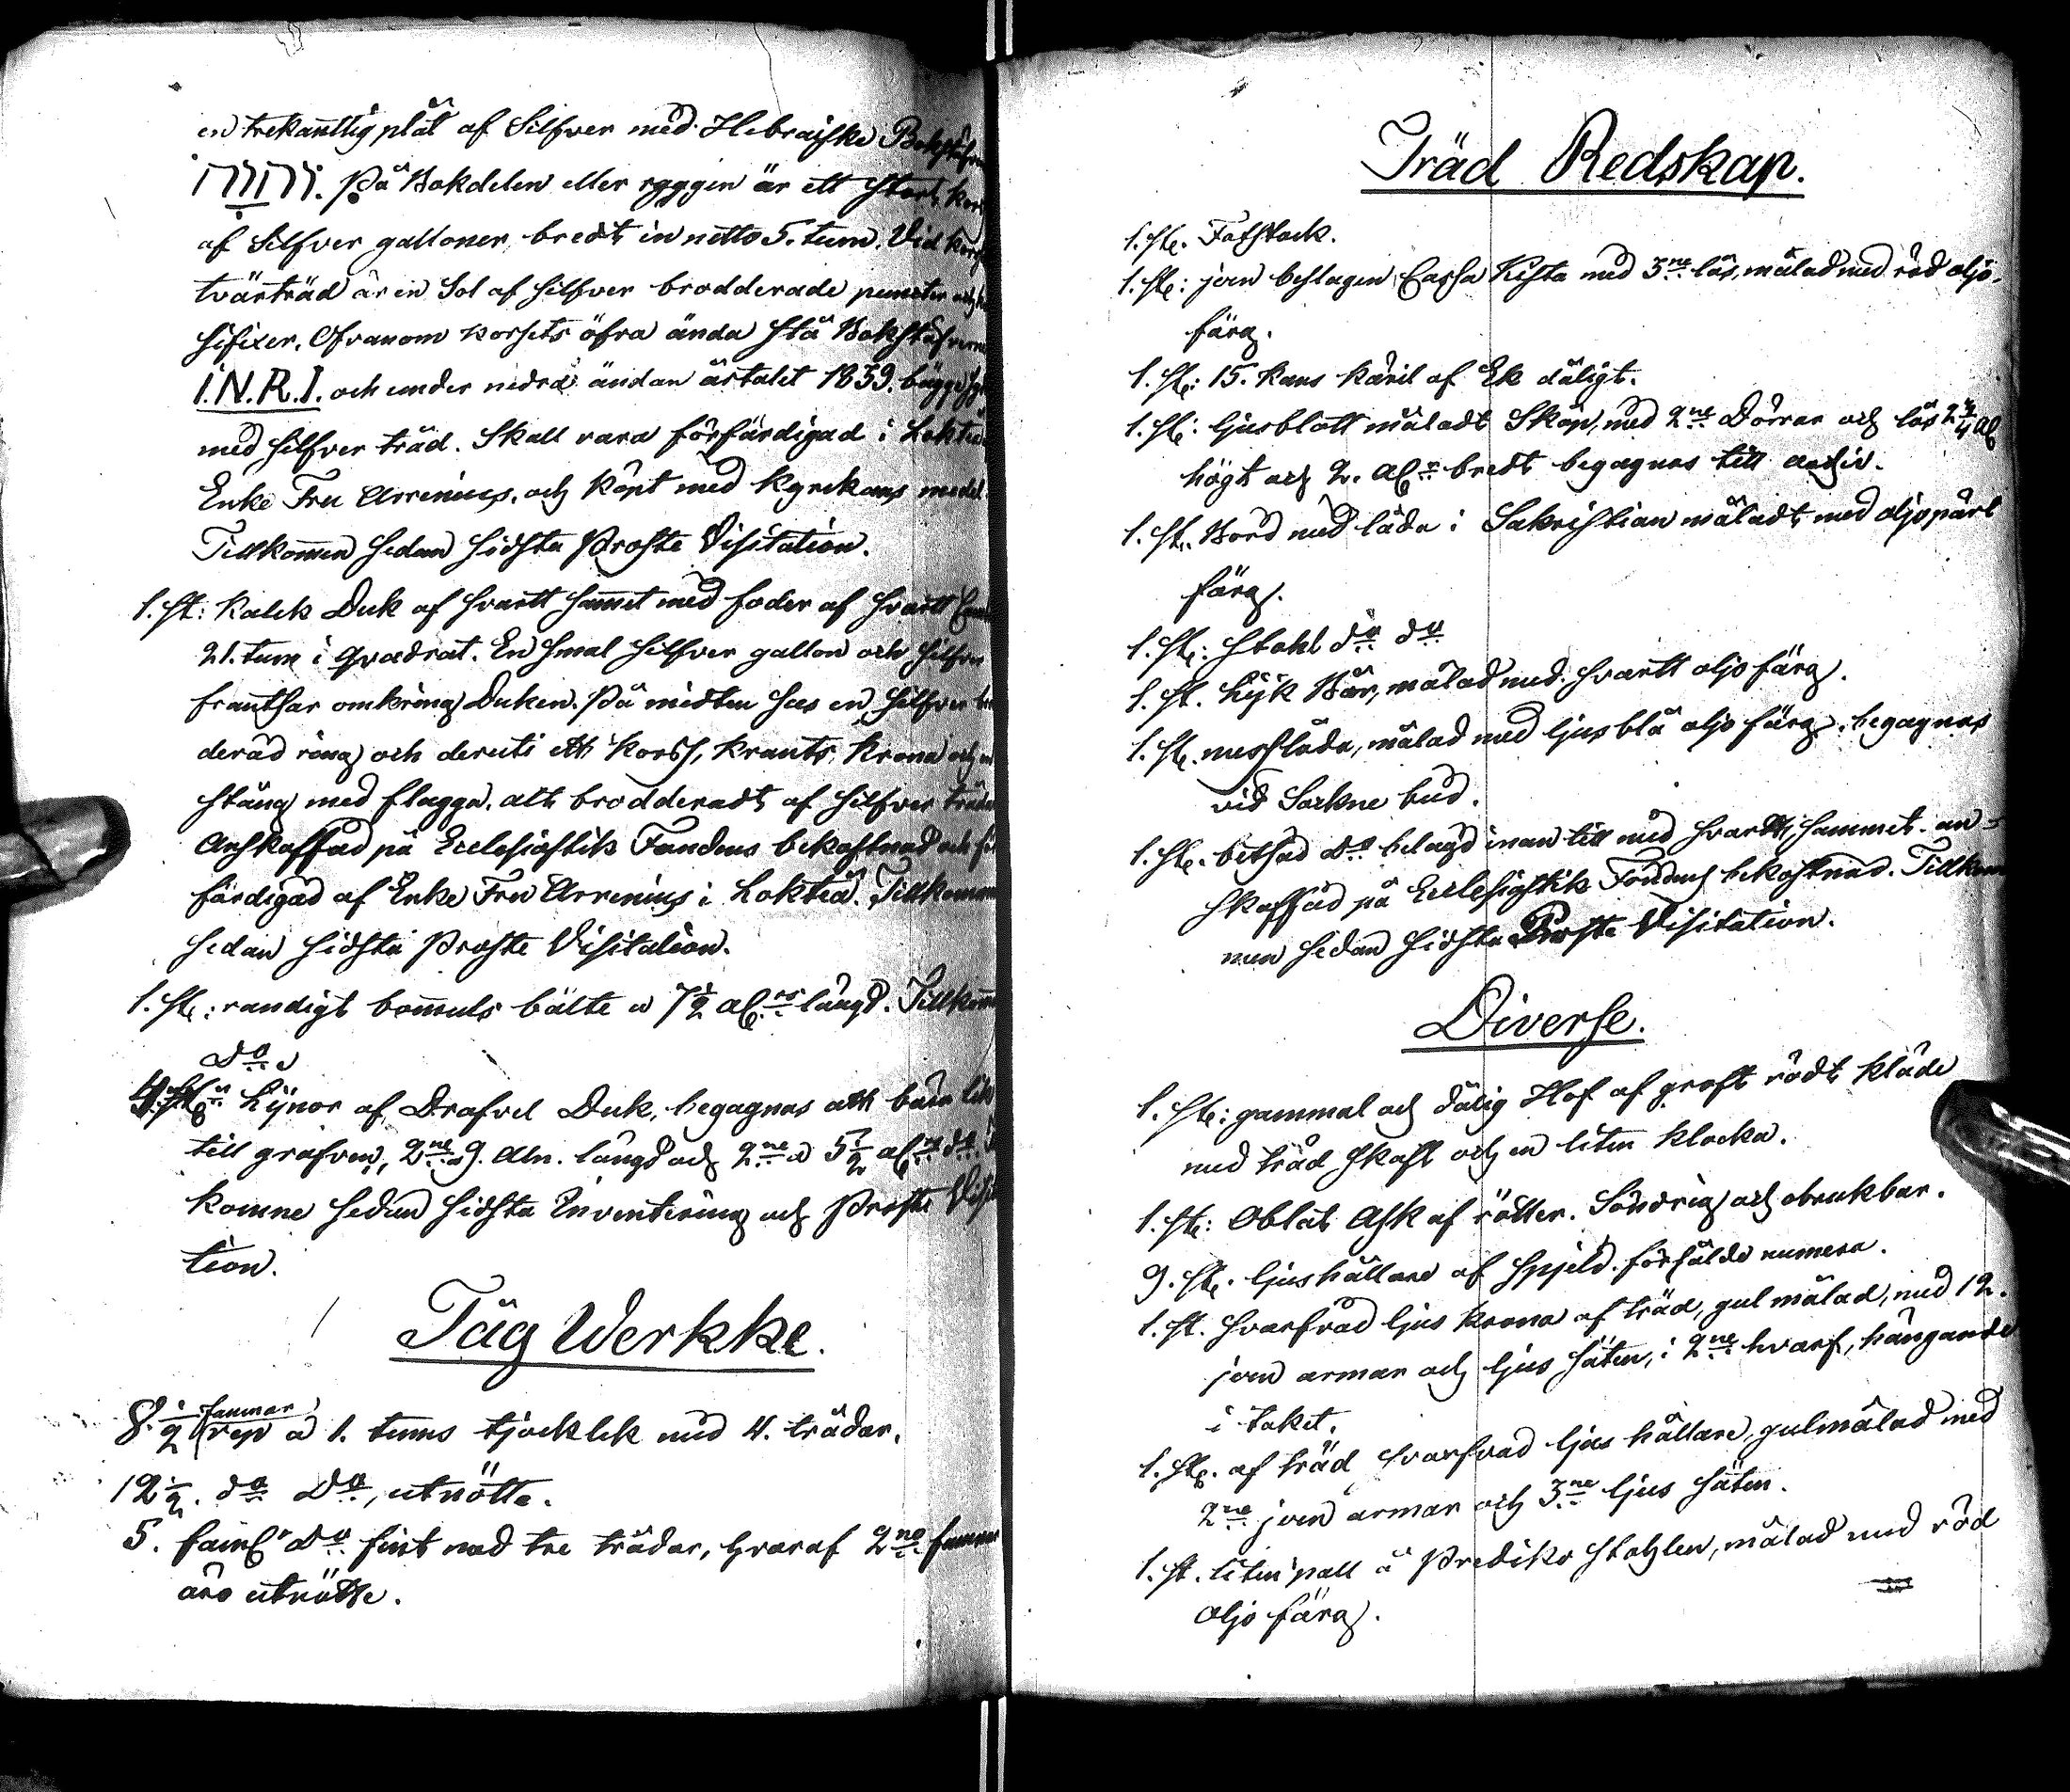 en trekanttig plåt af Silfver med Hebraiske Bokstäfver
יהוה. På Bakdelen eller ryggen är ett stort kors
af Silfver galloner bredt in netto 5. tum. Vid korsets
tvärträd är en Sol af silfver brodderade puncter och
sifixer. Ofvanom korsets öfra ända stå Bokstäfverne
I.N.R.I. och under nedra ändan årtalet 1839. bägge
med silfver tråd. Skall vara förfärdigad i Lokteå
Enke Fru Arrenius, och köpt med Kyrckans medel.
Tillkommen sedan sidsta Proste Visitation.
1. st: Kalck Duk af svartt sammet med foder af svartt
21. tum i Qvadrat. En smal silfver gallon och silfver
frantsar omkring Duken. På midten ses en silfver bro
derad ring och deruti ett Korss, Krants, Krona och en
stång med flagga, alt brodderadt af silfver tråden
Anskaffad på Ecclesiastik Fondens bekostnad och
färdigad af Enke Fru Arrenius i Lokteå. Tillkommen
sedan sidsta Proste Visitation.
1. st: randigt bomuls bälte a 7 1/2 alnrs längd. Tillkommen
Do
4. st: Lijnor af Drafvel Duk, begagnas att bära lik
till grafven, 2ne a 9. Aln. längd och 2ne a 5 1/2 aln do.
komne sedan sidsta Inventering och Proste Visita
tion.
Tåg Werkke.
8 1/2 famnar rep a 1. tums tjocklek med 4. trådar.
12 1/2. do Do, utnötte.
5. famr Do fint med tre trådar, hvaraf 2ne famnar
äro utnötte.
Träd Redskap.
1. st. Fotstock.
1. st: jern beslagen Cassa Kista med 3ne lås, målad med röd oljo-
färg.
1. st: 15. kans käril af Ek dåligt.
1. st: ljusblått måladt Skåp, med 2ne Dörrar och lås 2 3/4 al
högt och 2. alnr bredt begagnas till archiv.
1. st. Bord med låda i Sakristian måladt med oljo pärl
färg.
1. st: Stohl do do
1. st. Lijk Bår, målad med svartt oljo färg.
1. st. mess låda, målad med ljus blå oljo färg, begagnas
vid Sockne bud.
1. st. betsad Do belagd inan till med svartt sammet. an-
skaffad på Ecclesiastik Fondens bekostnad. Tillkom
men sedan sidsta Proste Visitation.
Diverse.
1. st: gammal och dålig Hof af groft rödt kläde
med träd skaft och en liten klocka.
1. st: Oblat Ask af rötter. Söndrig och obrukbar.
9. st. ljushållare af spjeld. försålde numera.
1. st. svarfvad ljus krona af träd, gul målad, med 12.
jern armar och ljus säten, i 2ne hvarf, hängande
i taket.
1. st. af träd svarfvad ljus hållare, gulmålad med
2ne jern armar och 3ne ljus säten.
1. st. liten pall å Prediko Stohlen, målad med röd
oljo färg.